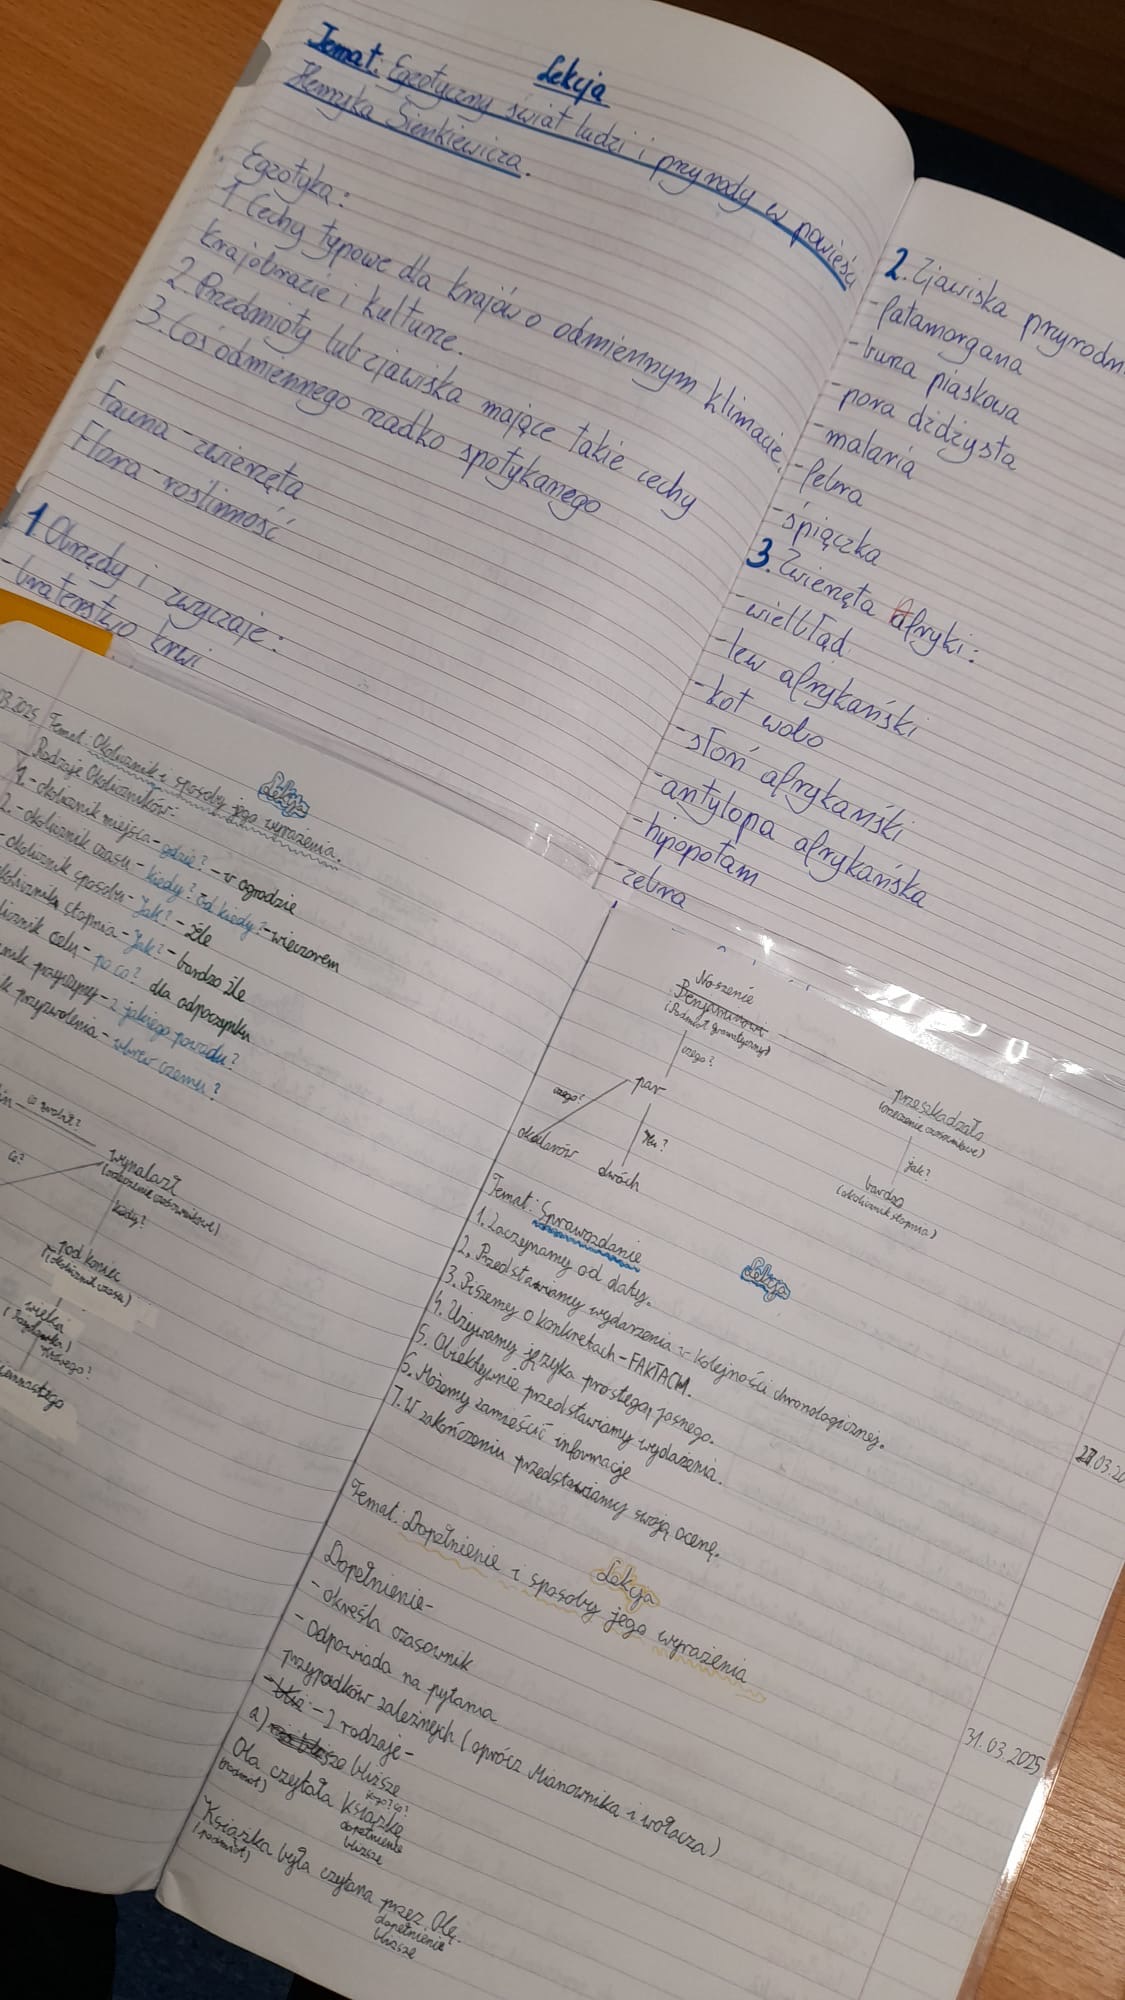 Lekcja
Temat: Egzotyczny świat ludzi i przyrody w powieści
Henryka Sienkiewicza.
Egzotyka:
1. Cechy typowe dla krajów o odmiennym klimacie,
krajobrazie i kulturze.
2. Przedmioty lub zjawiska mające takie cechy
3. Coś odmiennego rzadko spotykanego
Fauna - zwierzęta
Flora - roślinność
1. Obrzędy i zwyczaje:
- braterstwo krwi
2. Zjawiska
- fatamorgana
- burza piaskowa
- pora dżdżysta
- malaria
- febra
- śpiączka
3. Zwierzęta Afryki:
- wielbłąd
- lew afrykański
- kot wobo
- słoń afrykański
- antylopa afrykańska
- hipopotam
- zebra
03.2025
Lekcja
Temat: Okolicznik i sposoby jego wyrażenia.
Rodzaje Okoliczników:
1. - okolicznik miejsca - gdzie? - w ogrodzie
2. - okolicznik czasu - kiedy? od kiedy? - wieczorem
- okolicznik sposobu - Jak? - źle
okolicznik stopnia - Jak? - bardzo źle
celu - po co? dla odpoczynku
przyczyny - z jakiego powodu?
przyzwolenia - wbrew czemu?
co zrobił?
co?
wynalazł
(orzeczenie czasownikowe)
kiedy?
pod koniec
(okolicznik czasu)
wieku
(Przydawka)
którego?
Noszenie
(Podmiot gramatyczny)
czego?
par
czego?
okularów
ilu?
dwóch
przeszkadzała
(orzeczenie czasownikowe)
jak?
bardzo
(okolicznik stopnia)
Lekcja
Temat: Sprawozdanie
1. Zaczynamy od daty.
2. Przedstawiamy wydarzenia w kolejności chronologicznej.
3. Piszemy o konkretach - FAKTACH.
4. Używamy języka prostego, jasnego.
5. Obiektywnie przedstawiamy wydażenia.
6. Możemy zamieścić informacje
7. W zakończeniu przedstawiamy swoją ocenę.
Lekcja
Temat: Dopełnienie i sposoby jego wyrażenia
Dopełnienie -
- określa czasownik
- Odpowiada na pytania
przypadków zależnych (oprócz Mianownika i wołacza)
- 2 rodzaje -
a) bliższe
kogo? co?
Ola czytała książkę
(podmiot)
dopełnienie
bliższe
31.03.2025
Książka była czytana przez Olę.
(podmiot)
dopełnienie
bliższe